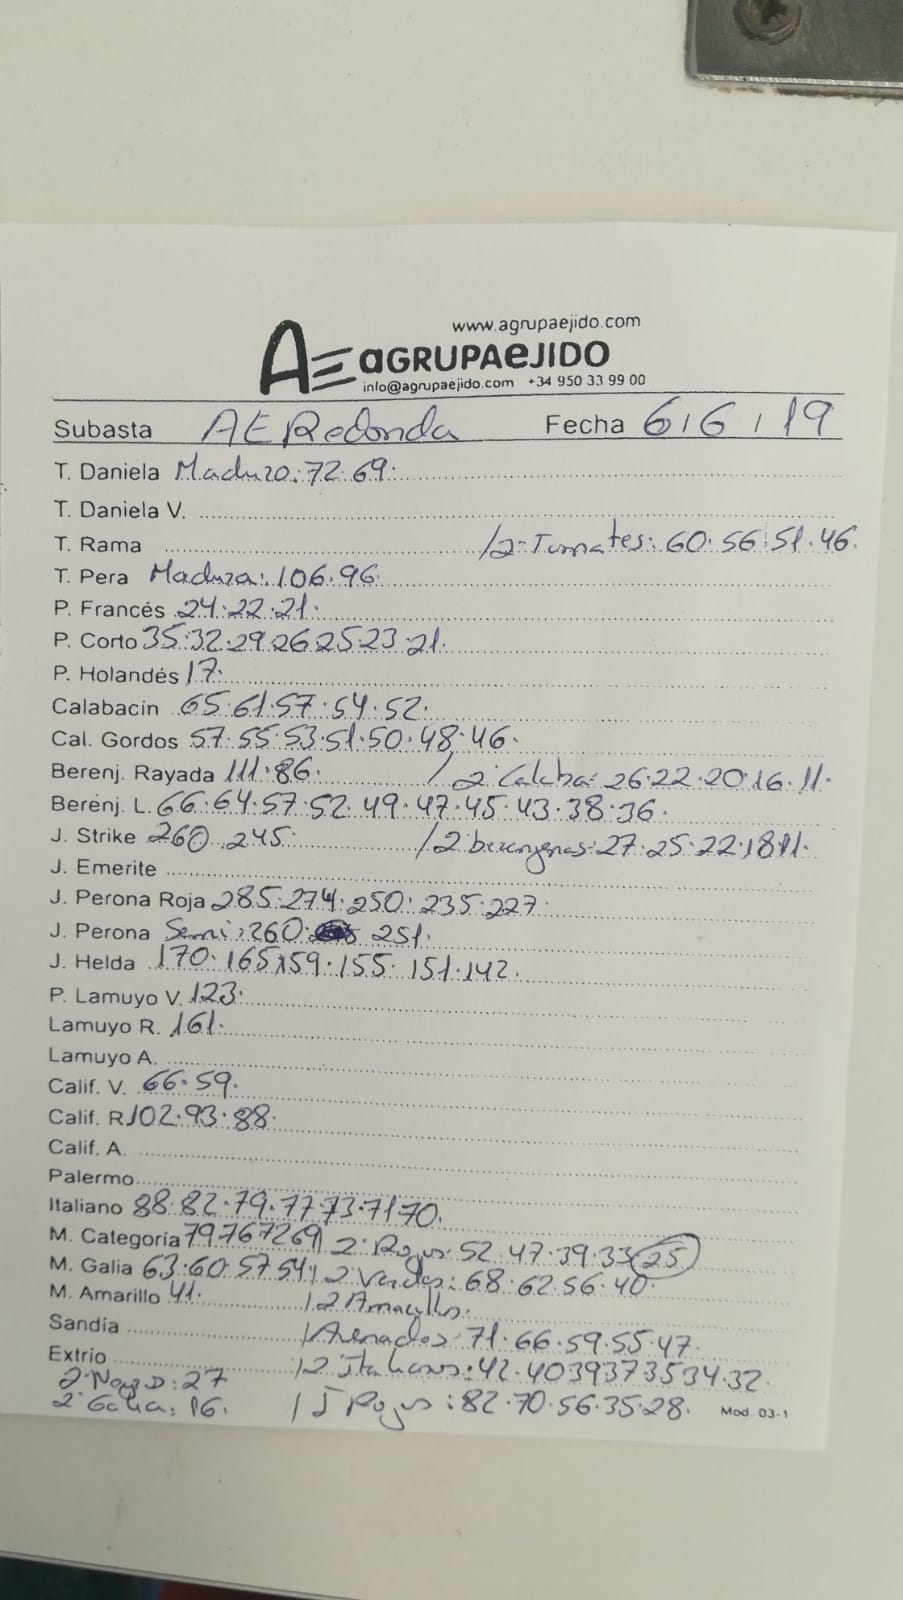 www.agrupaejido.com
AE aGRUPAeJIDO
info@agrupaejido.com +34 950 33 99 00
Subasta AE Redonda Fecha 6/6/19
T. Daniela Maduro: 72·69·
T. Daniela V.
T. Rama /2ª Tomates: 60·56·51·46·
T. Pera Madura: 106·96·
P. Francés 24·22·21·
P. Corto 35·32·29·26·25·23·21·
P. Holandés 17·
Calabacín 65·61·57·54·52·
Cal. Gordos 57·55·53·51·50·48·46·
Berenj. Rayada 111·86· /2ª Calaba: 26·22·20·16·11·
Berenj. L. 66·64·57·52·49·47·45·43·38·36·
J. Strike 260·245· /2 berenjenas: 27·25·22·18·11·
J. Emerite
J. Perona Roja 285·274·250·235·227·
J. Perona Semi: 260· 251·
J. Helda 170·165·159·155·151·142·
P. Lamuyo V. 123·
Lamuyo R. 161·
Lamuyo A.
Calif. V. 66·59·
Calif. R. 102·93·88·
Calif. A.
Palermo
Italiano 88·82·79·77·73·71·70·
M. Categoría 79·76·72·69 / 2ª Rojos: 52·47·39·33 25
M. Galia 63·60·57·54 / 2 Verdes: 68·62·56·40·
M. Amarillo 41· / 2 Amarillos·
Sandía / Asenados 71·66·59·55·47·
Extrio / 2 Italianos: 42·40·39·37·35·34·32·
27
2ª Galia: 16· / J Rojos: 82·70·56·35·28· Mod. 03-1